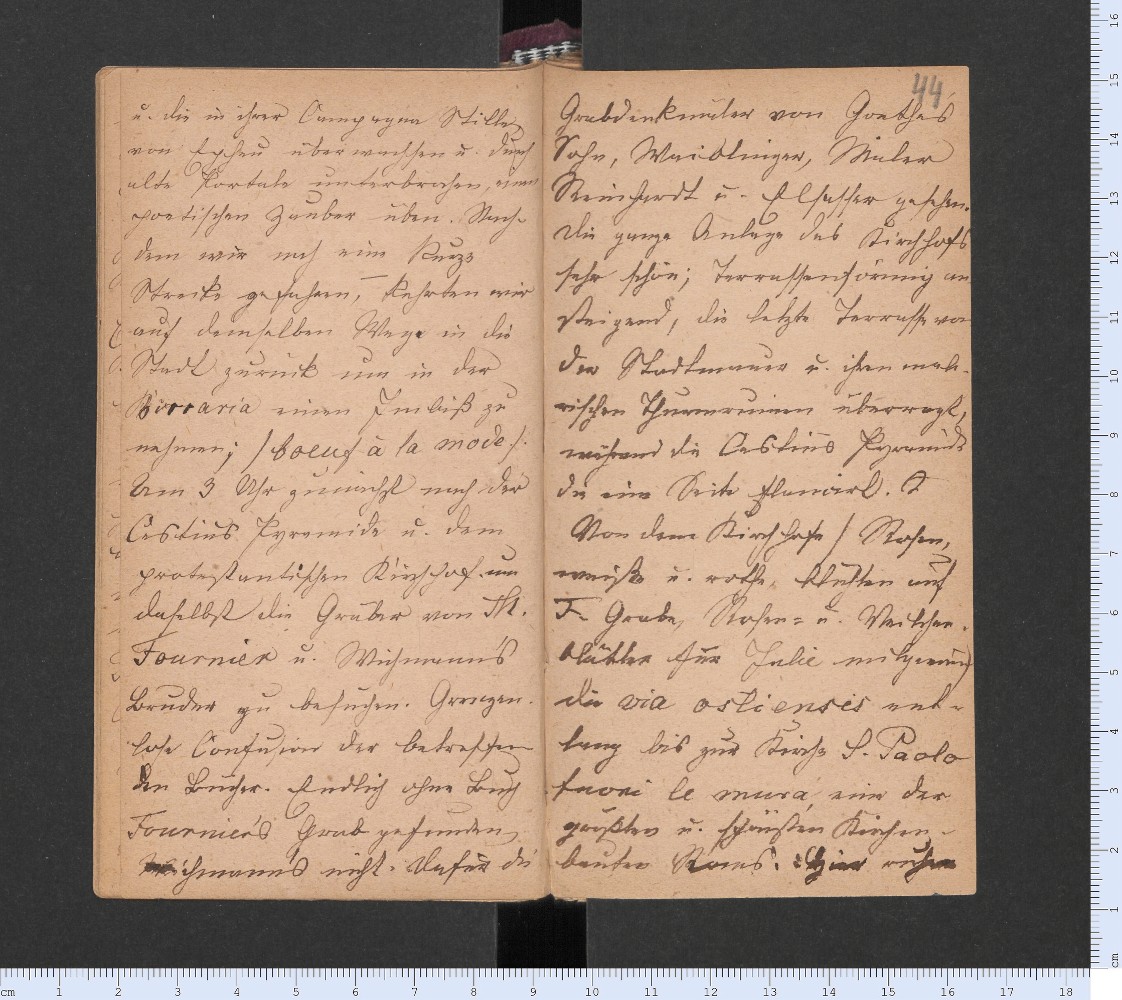 u. die in ihrer Campagna Stille
von Epheu überwachsen u. durch
alte Portale unterbrochen, einen
poetischen Zauber üben. Nach-
dem wir noch eine kurze
Strecke gefahren, kehrten wir
auf demselben Wege in die
Stadt zurück um in der
Birraria einen Imbiß zu
nehmen; /boeuf à la mode/.
Um 3 Uhr zunächst nach der
Cestius Pyramide u. dem
protestantischen Kirchhof um
daselbst die Gräber von Th.
Fournier u. Wichmann's
Bruder zu besuchen. Grenzen-
lose Confusion der betreffen-
den Bücher. Endlich ohne Buch
Fournier's Grab gefunden,
Wichmann's nicht. Dafür die
44
Grabdenkmäler von Goethes
Sohn, Waiblinger, Maler
Reinhardt u. Elsasser gesehen.
Die ganze Anlage des Kirchhofs
sehr schön; terrassenförmig an
steigend, die letzte Terrasse von
der Stadtmauer u. ihren male-
rischen Thurmruinen überragt,
während die Cestius Pyramide
die eine Seite flankirt.
Von dem Kirchhofe / Rosen,
weiße u. rothe, blühten auf
F. Grabe, Rosen- u. Veilchen-
blätter für Julie mitgenom)
die via ostiensis ent-
lang bis zur Kirche S. Paolo
fuori le mura, eine der
größten u. schönsten Kirchen-
bauten Roms. Hier ruhen